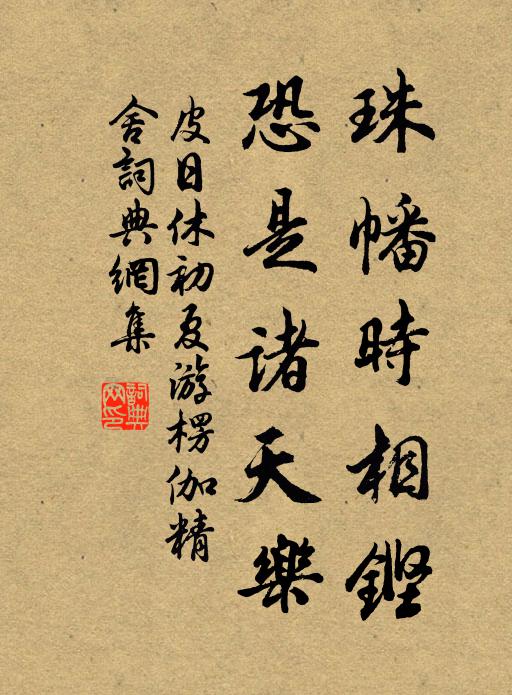 珠幡時相鏗
恐是诸天樂
皮日休初夏游楞伽精
舍詞典網集
詞典
网印